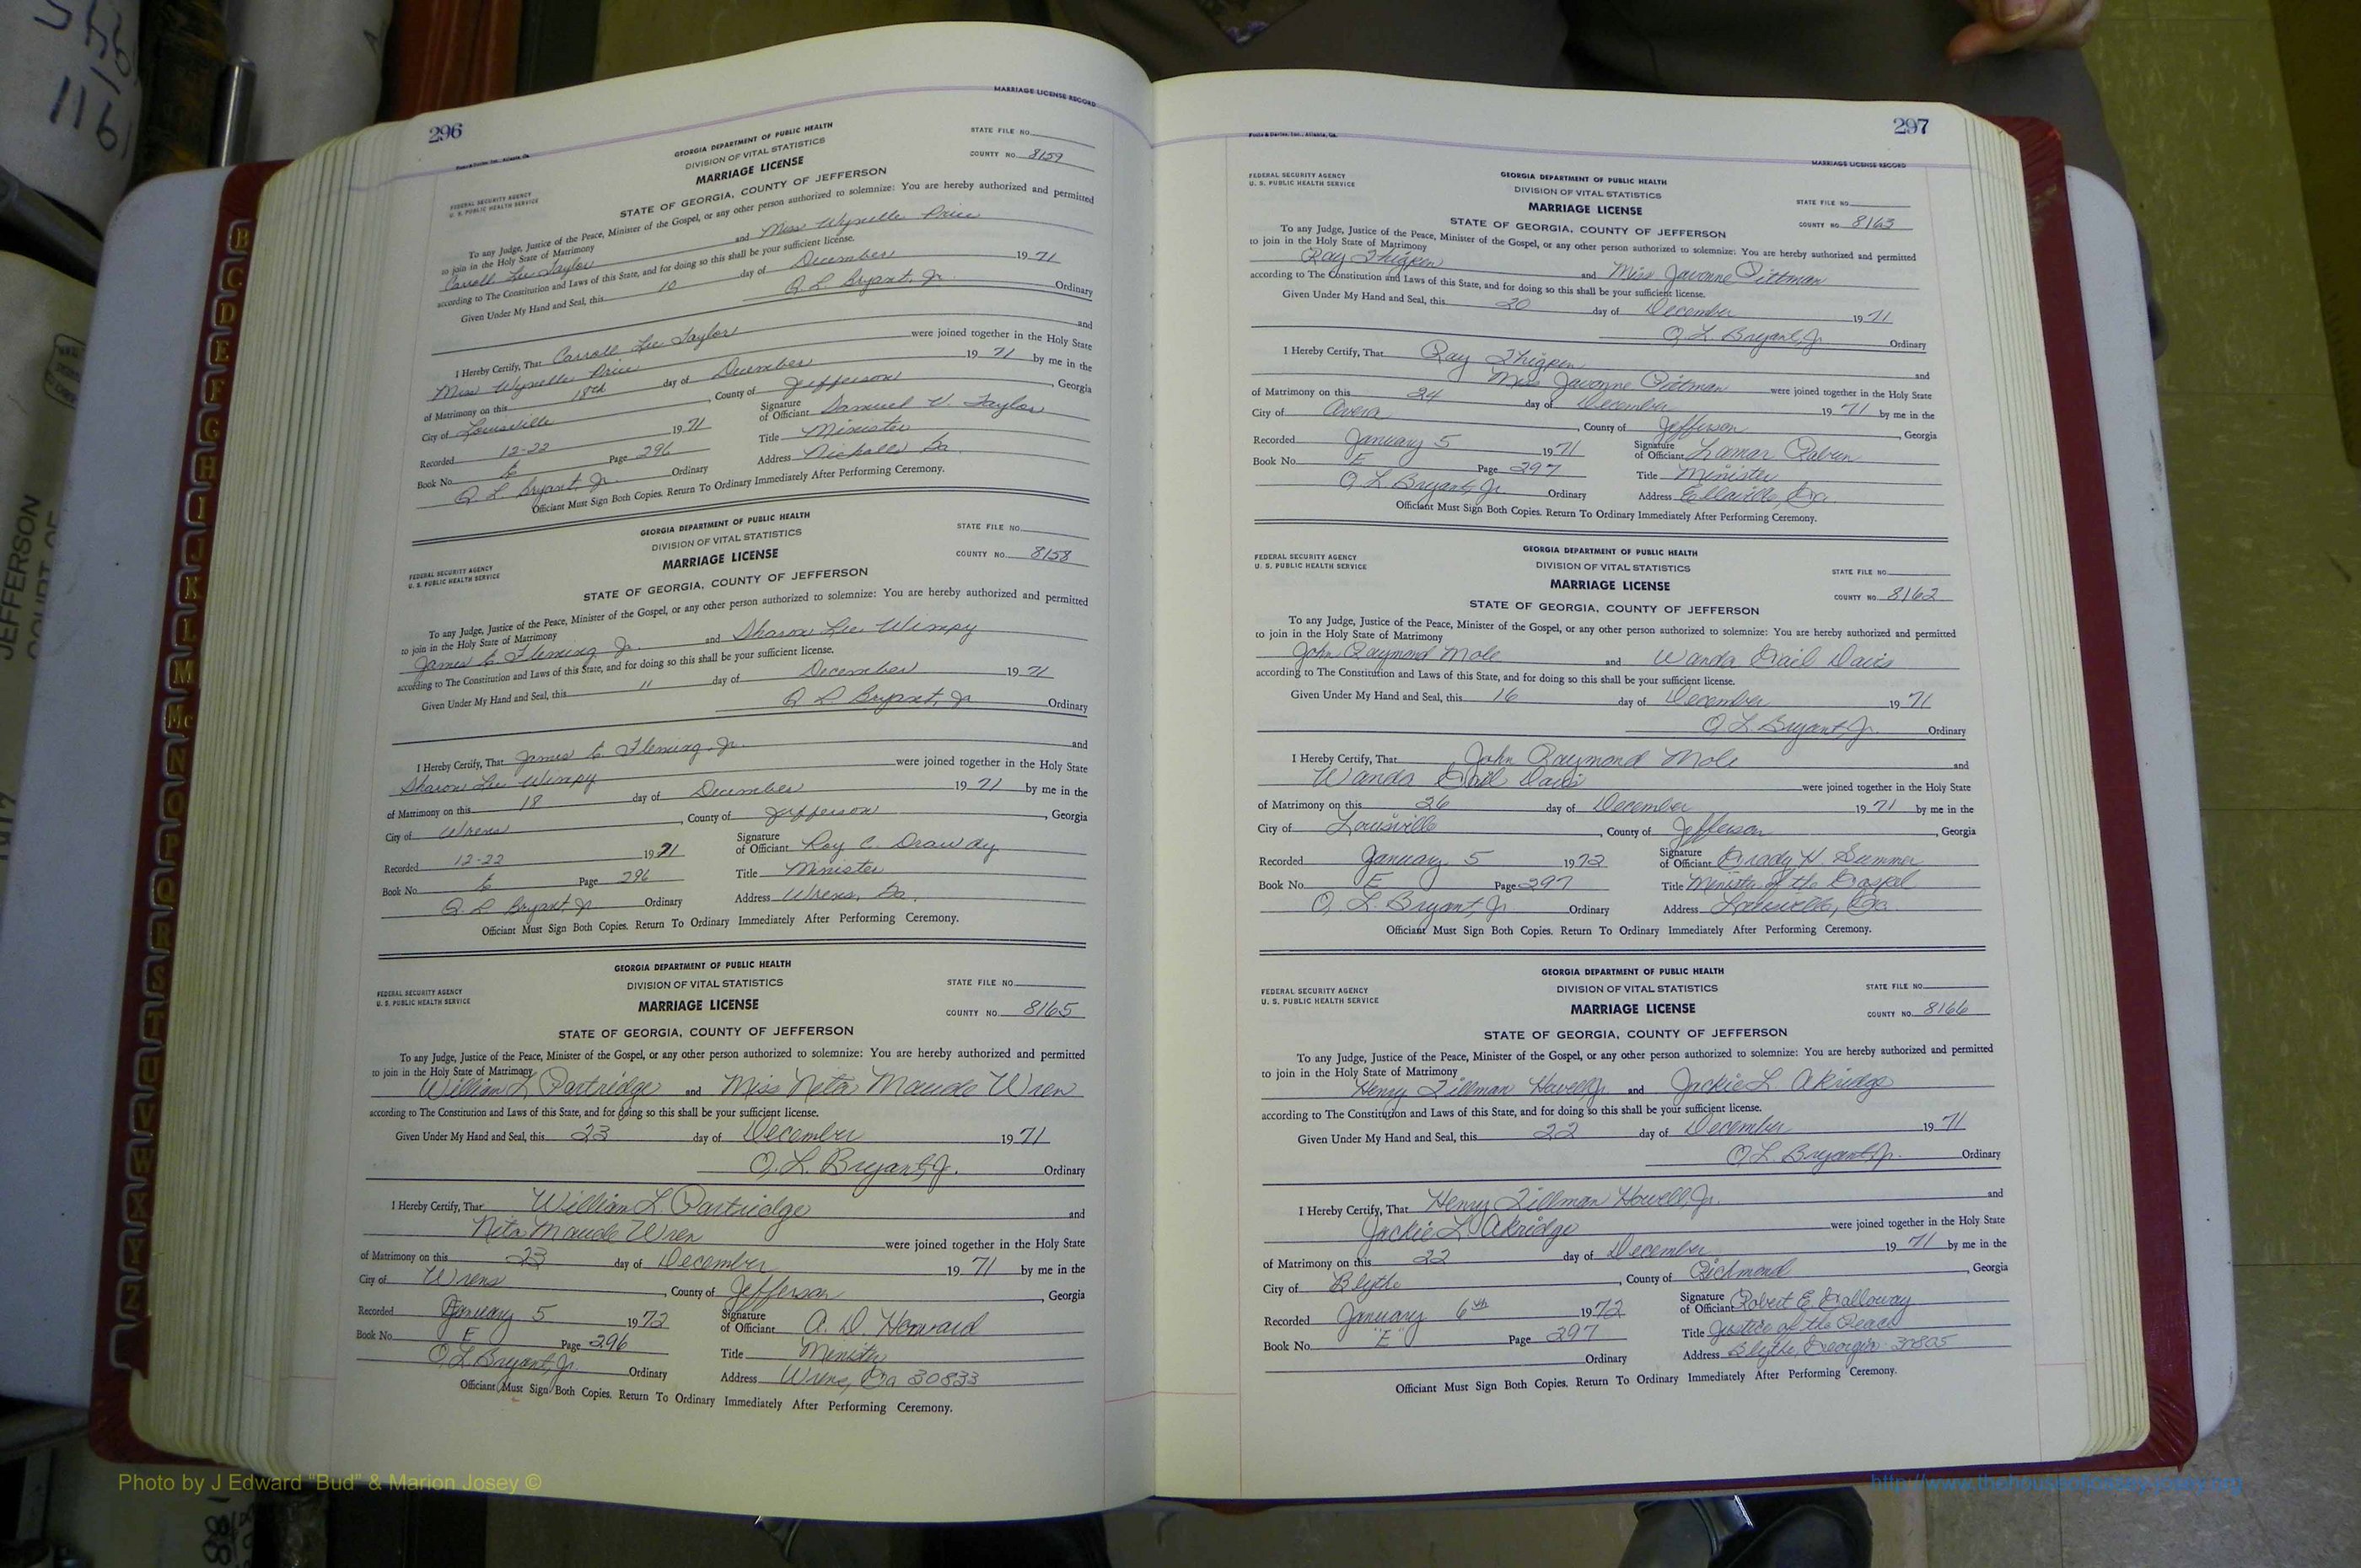 296
MARRIAGE LICENSE RECORD
GEORGIA DEPARTMENT OF PUBLIC HEALTH
DIVISION OF VITAL STATISTICS
MARRIAGE LICENSE
STATE OF GEORGIA, COUNTY OF JEFFERSON
FEDERAL SECURITY AGENCY
U. S. PUBLIC HEALTH SERVICE
STATE FILE NO.
COUNTY NO. 8159
To any Judge, Justice of the Peace, Minister of the Gospel, or any other person authorized to solemnize: You are hereby authorized and permitted
to join in the Holy State of Matrimony
Carroll Lee Taylor and Miss Wynelle Price
according to The Constitution and Laws of this State, and for doing so this shall be your sufficient license.
Given Under My Hand and Seal, this 10 day of December 1971
Q L Bryant, Jr. Ordinary
I Hereby Certify, That Carroll Lee Taylor and
Miss Wynelle Price were joined together in the Holy State
of Matrimony on this day of December 1971 by me in the
City of Louisville, County of Jefferson, Georgia
Recorded 12-22 1971 Signature of Officiant Samuel V. Taylor
Book No. E Page 296 Title Minister
Q. L. Bryant, Jr. Ordinary Address Nicholls Ga.
Officiant Must Sign Both Copies. Return To Ordinary Immediately After Performing Ceremony.
GEORGIA DEPARTMENT OF PUBLIC HEALTH
DIVISION OF VITAL STATISTICS
MARRIAGE LICENSE
STATE OF GEORGIA, COUNTY OF JEFFERSON
FEDERAL SECURITY AGENCY
U. S. PUBLIC HEALTH SERVICE
STATE FILE NO.
COUNTY NO. 8158
To any Judge, Justice of the Peace, Minister of the Gospel, or any other person authorized to solemnize: You are hereby authorized and permitted
to join in the Holy State of Matrimony
James E. Fleming Jr. and Sharon Lee Wimpy
according to The Constitution and Laws of this State, and for doing so this shall be your sufficient license.
Given Under My Hand and Seal, this 11 day of December 1971
Q L Bryant, Jr Ordinary
I Hereby Certify, That James E. Fleming, Jr. and
Sharon Lee Wimpy were joined together in the Holy State
of Matrimony on this 18 day of December 1971 by me in the
City of Wrens, County of Jefferson, Georgia
Recorded 12-22 1971 Signature of Officiant Roy C. Drawdy
Book No. E Page 296 Title Minister
Q. L Bryant, Jr Ordinary Address Wrens, Ga.
Officiant Must Sign Both Copies. Return To Ordinary Immediately After Performing Ceremony.
GEORGIA DEPARTMENT OF PUBLIC HEALTH
DIVISION OF VITAL STATISTICS
MARRIAGE LICENSE
STATE OF GEORGIA, COUNTY OF JEFFERSON
FEDERAL SECURITY AGENCY
U. S. PUBLIC HEALTH SERVICE
STATE FILE NO.
COUNTY NO. 8165
To any Judge, Justice of the Peace, Minister of the Gospel, or any other person authorized to solemnize: You are hereby authorized and permitted
to join in the Holy State of Matrimony
William L Partridge and Miss Neta Maude Wren
according to The Constitution and Laws of this State, and for doing so this shall be your sufficient license.
Given Under My Hand and Seal, this 23 day of December 1971
Q. L. Bryant, Jr. Ordinary
I Hereby Certify, That William L Partridge and
Neta Maude Wren were joined together in the Holy State
of Matrimony on this 23 day of December 1971 by me in the
City of Wrens, County of Jefferson, Georgia
Recorded January 5 1972 Signature of Officiant A. D. Howard
Book No. E Page 296 Title Minister
Q. L. Bryant, Jr. Ordinary Address Wrens, Ga 30833
Officiant Must Sign Both Copies. Return To Ordinary Immediately After Performing Ceremony.
297
MARRIAGE LICENSE RECORD
GEORGIA DEPARTMENT OF PUBLIC HEALTH
DIVISION OF VITAL STATISTICS
MARRIAGE LICENSE
STATE OF GEORGIA, COUNTY OF JEFFERSON
FEDERAL SECURITY AGENCY
U. S. PUBLIC HEALTH SERVICE
STATE FILE NO.
COUNTY NO. 8163
To any Judge, Justice of the Peace, Minister of the Gospel, or any other person authorized to solemnize: You are hereby authorized and permitted
to join in the Holy State of Matrimony
Ray Thigpen and Miss Javonne Pittman
according to The Constitution and Laws of this State, and for doing so this shall be your sufficient license.
Given Under My Hand and Seal, this 20 day of December 1971
Q. L. Bryant, Jr Ordinary
I Hereby Certify, That Ray Thigpen and
Miss Javonne Pittman were joined together in the Holy State
of Matrimony on this 24 day of December 1971 by me in the
City of Avera, County of Jefferson, Georgia
Recorded January 5 1971 Signature of Officiant Lamar Rabun
Book No. E Page 297 Title Minister
Q. L. Bryant, Jr. Ordinary Address Ellaville, Ga
Officiant Must Sign Both Copies. Return To Ordinary Immediately After Performing Ceremony.
GEORGIA DEPARTMENT OF PUBLIC HEALTH
DIVISION OF VITAL STATISTICS
MARRIAGE LICENSE
STATE OF GEORGIA, COUNTY OF JEFFERSON
FEDERAL SECURITY AGENCY
U. S. PUBLIC HEALTH SERVICE
STATE FILE NO.
COUNTY NO. 8162
To any Judge, Justice of the Peace, Minister of the Gospel, or any other person authorized to solemnize: You are hereby authorized and permitted
to join in the Holy State of Matrimony
John Raymond Mole and Wanda Gail Davis
according to The Constitution and Laws of this State, and for doing so this shall be your sufficient license.
Given Under My Hand and Seal, this 16 day of December 1971
Q. L. Bryant, Jr. Ordinary
I Hereby Certify, That John Raymond Mole and
Wanda Gail Davis were joined together in the Holy State
of Matrimony on this 26 day of December 1971 by me in the
City of Louisville, County of Jefferson, Georgia
Recorded January 5 1972 Signature of Officiant Grady H. Summer
Book No. E Page 297 Title Minister of the Gospel
Q. L. Bryant, Jr. Ordinary Address Louisville, Ga.
Officiant Must Sign Both Copies. Return To Ordinary Immediately After Performing Ceremony.
GEORGIA DEPARTMENT OF PUBLIC HEALTH
DIVISION OF VITAL STATISTICS
MARRIAGE LICENSE
STATE OF GEORGIA, COUNTY OF JEFFERSON
FEDERAL SECURITY AGENCY
U. S. PUBLIC HEALTH SERVICE
STATE FILE NO.
COUNTY NO. 8166
To any Judge, Justice of the Peace, Minister of the Gospel, or any other person authorized to solemnize: You are hereby authorized and permitted
to join in the Holy State of Matrimony
Henry Tillman Howell, Jr. and Jackie L. Akridge
according to The Constitution and Laws of this State, and for doing so this shall be your sufficient license.
Given Under My Hand and Seal, this 22 day of December 1971
Q. L. Bryant, Jr. Ordinary
I Hereby Certify, That Henry Tillman Howell, Jr. and
Jackie L. Akridge were joined together in the Holy State
of Matrimony on this 22 day of December 1971 by me in the
City of Blythe, County of Richmond, Georgia
Recorded January 6th 1972 Signature of Officiant Robert E. Galloway
Book No. "E" Page 297 Title Justice of the Peace
Ordinary Address Blythe, Georgia 30805
Officiant Must Sign Both Copies. Return To Ordinary Immediately After Performing Ceremony.
B
C
D
E
F
G
H
I
J
K
L
M
Mc
N
O
P
Q
R
S
T
U
V
W
X
Y
Z
JEFFERSON
COURT OF
Photo by J Edward "Bud" & Marion Josey ©